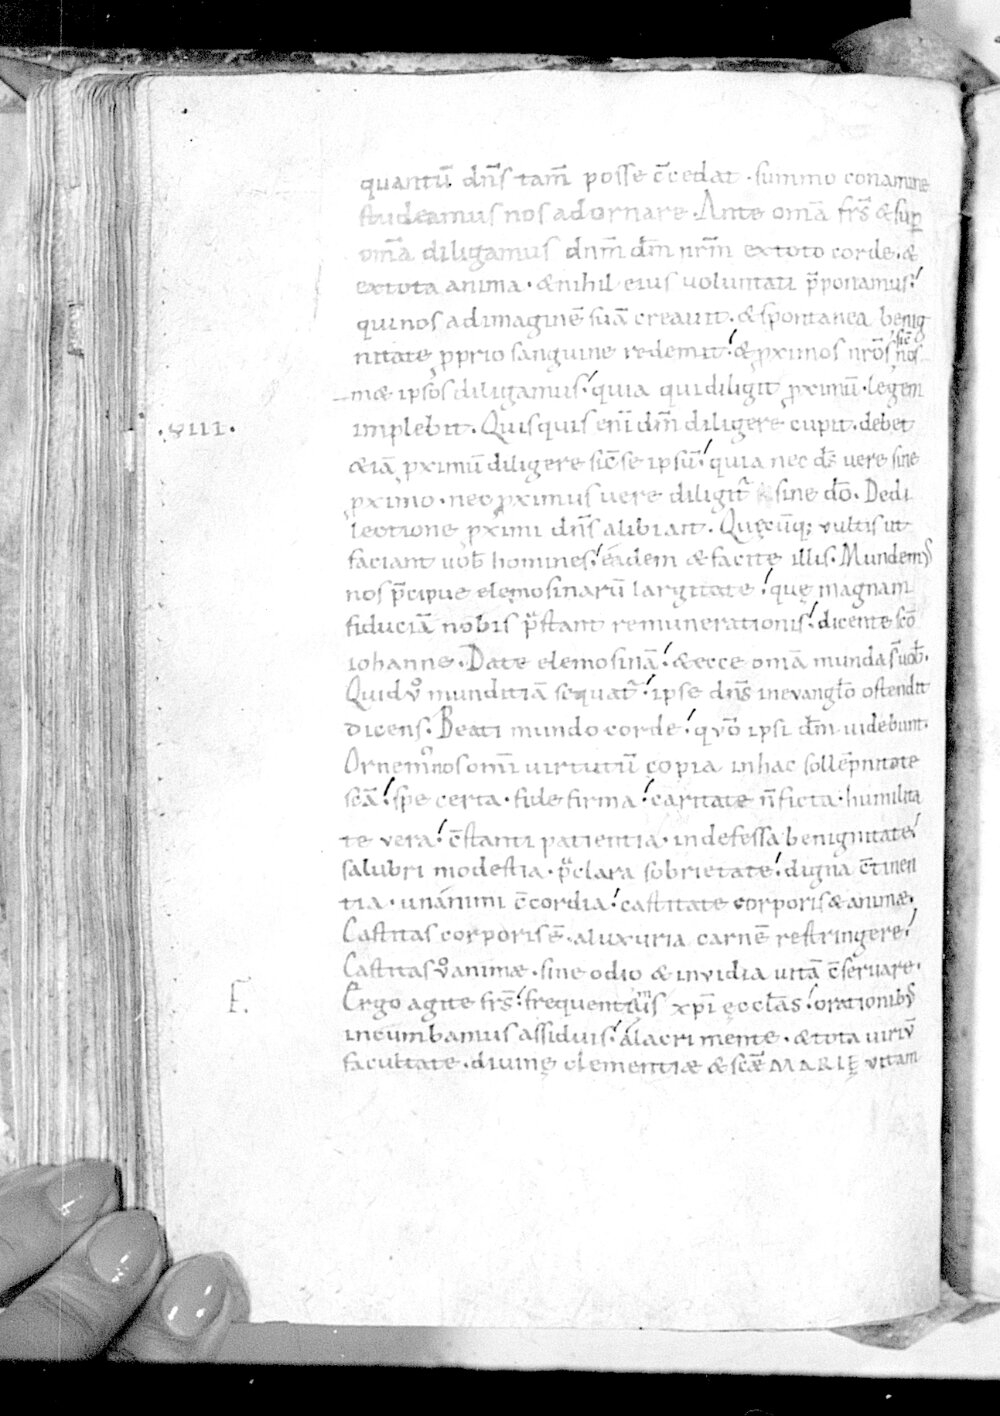 quantū dn̄s tam̄ posse c̄cedat · summo conamine
studeamus nos adornare · Ante om̄a frs̄ & sup̱
om̄a diligamus dn̄m dm̄ nr̄m extoto corde · &
extota anima · & nihil eius uoluntati p̄ponamus!
quinos adimaginē suā creauit · & spontanea benig
nitate ꝓprio sanguine redemit! & ꝓximos nr̄os sic̄ nos
mæ ipsos diligamus! quia qui diligit ꝓximū · legem
.VIII. implebit. Quisquis eni̅ dm̄ diligere cupit · debet
&iā ꝓximū diligere sic̄ se ipsū! quia nec ds̄ uere sine
ꝓximo · nec ꝓximus uere diligit᷑ sine dō. Dedi
lectione ꝓximi dn̄s alibi ait. Quęcūq; vultis ut
faciant uob̄ homines! eadem & facite illis. Mundem᷒
nos p̄cipue elemosinarū largitate! quę magnam
fiduciā nobis p̄stant remunerationis! dicente sc̄o
iohanne. Date elemosinā! & ecce om̄a munda s̄ uob̄.
Quid v̊ munditiā sequat᷑! ipse dn̄s inevangl̄o ostendit
dicens. Beati mundo corde! qvō ipsi dm̄ uidebunt.
Ornem᷒ nos omi̅ virtutū copia inhac sollēpnitate
sc̄ā! spe certa · fide firma! caritate n̄ficta · humilita
te vera! c̄stanti patientia · indefessa benignitate!
salubri modestia · p̄clara sobrietate! digna c̄tinen
tia · unánimi c̄cordia! castitate corporis & animæ.
Castitas corporis ē · aluxuria carnē restringere!
Castitas v̊ animæ · sine odio & invidia uitā c̄seruare.
F. Ergo agite frs̄! frequentem᷒ xp̄i ęccl̄as! orationib᷒
incumbamus assiduis! alacri mente · & tota viriū
facultate · divinę clementiæ & sc̄æ MARIĘ vitam